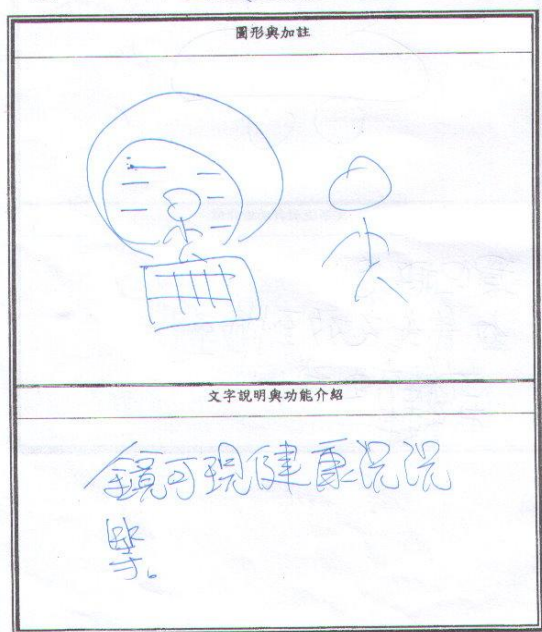 圖形與加註
文字說明與功能介紹
鏡可現健康況況